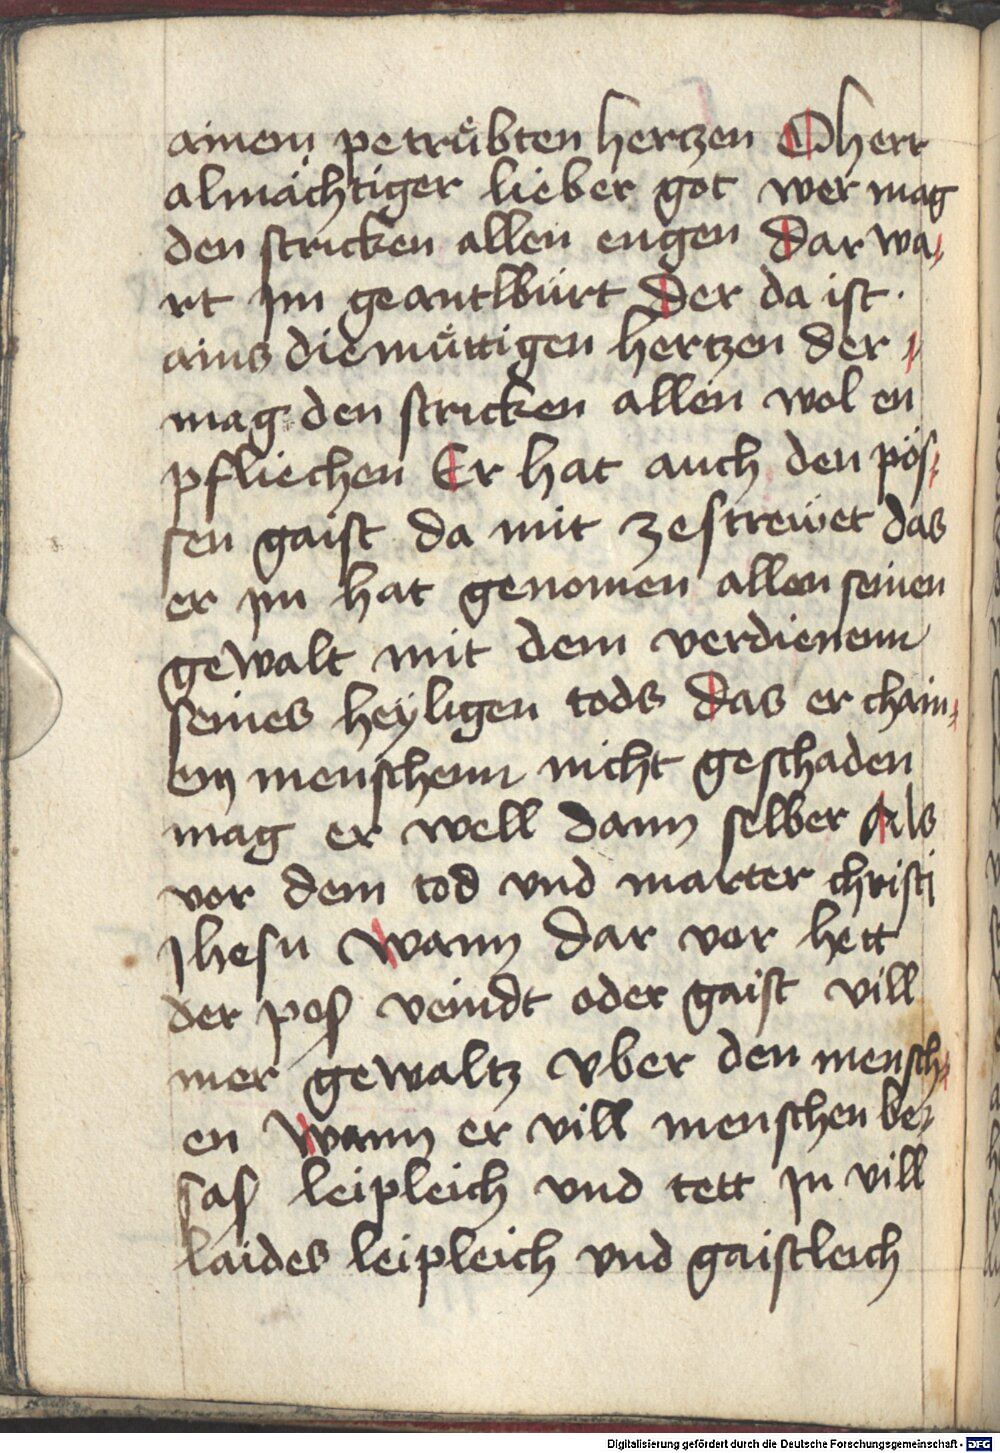 ainem petrübten hertzen O herr
almächtiger lieber got wer mag
den stricken allen engen Dar wa⸗
rt im geantwurt Der da ist ·
ains diemüttigen hertzen der ⸗
mag den stricken allen wol en
pfliechen Er hat auch den pös⸗
sen gaist da mit zestrewet das
er im hat genomen allen seinen
gewalt mit dem verdienenn
seines heyligen tods Das er chain⸗
en menschenn nicht geschaden
mag er well dann selber Als
vor dem tod vnd marter christi
Jhesu Wann dar vor hett
der pos veindt oder gaist vill
mer gewaltz vber den mensch⸗
en Wann er vill menschen be⸗
sas leipleich vnd tett in vill
laides leipleich vnd gaistleich
Digitalisierung gefördert durch die Deutsche Forschungsgemeinschaft - DFG